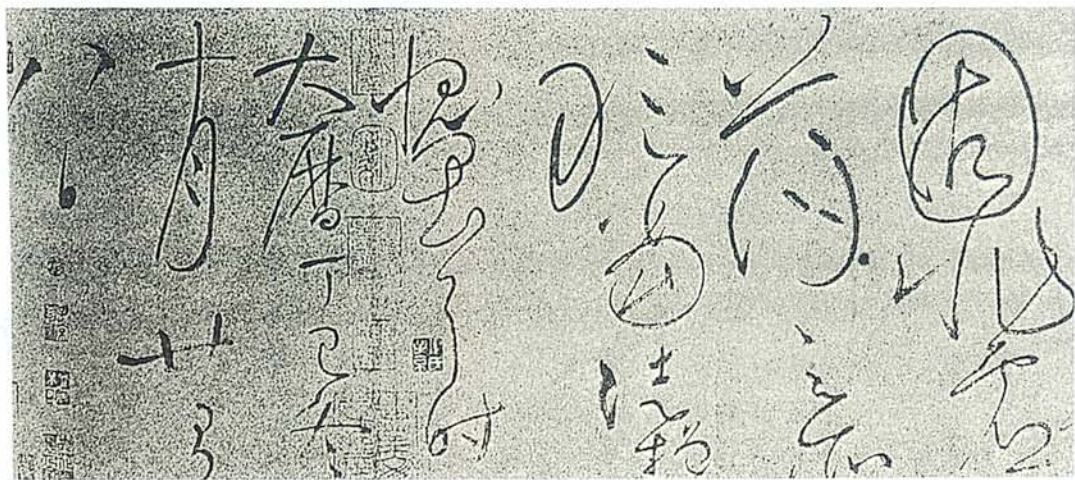 固非虛
蕩之所
敢當徒增
愧畏耳時
大曆丁巳冬
十月廿有
八日